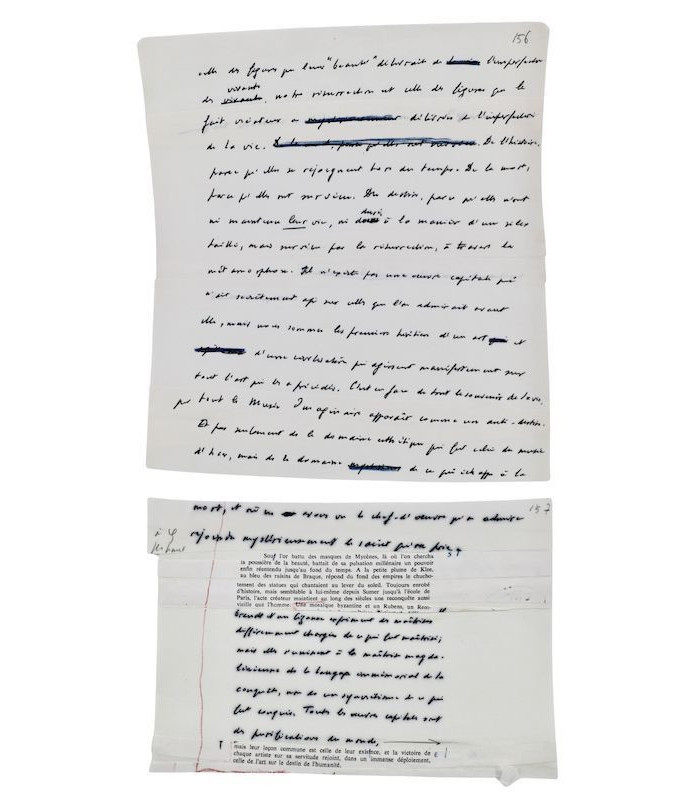 156
celle des figures que leur "beauté" délivrait de l'imperfection
vivante
des vivants, notre résurrection est celle des figures que le
fait créateur a délivrées de l'imperfection
de la vie. De l'histoire,
parce qu'elles se rejoignent hors du temps. De la mort,
parce qu'elles ont survécu. Du destin, parce qu'elles n'ont
ni maintenu leur vie, ni à la manière d'un silex
taillé, mais survécu par la résurrection, à travers la
métamorphose. Il n'existe pas une œuvre capitale qui
n'ait secrètement agi sur celles que l'on admirait avant
elle, mais nous sommes les premiers héritiers d'un art et
d'une civilisation qui agissent manifestement sur
tout l'art qui les a précédés. C'est en face de tout le
que tout le Musée Imaginaire apparaît comme un anti-destin.
Et pas seulement de le domaine esthétique qui fut celui du musée
d'hier, mais de le domaine de ce qui échappe à la
157
mort, et où nous avons vu le chef-d'œuvre qu'on admire
rejoindre mystérieusement le saint qu'on prie,
Sous l'or battu des masques de Mycènes, là où l'on chercha
la poussière de la beauté, battait de sa pulsation millénaire un pouvoir
enfin réentendu jusqu'au fond du temps. A la petite plume de Klee,
au bleu des raisins de Braque, répond du fond des empires le chucho-
tement des statues qui chantaient au lever du soleil. Toujours enrobé
d'histoire, mais semblable à lui-même depuis Sumer jusqu'à l'école de
Paris, l'acte créateur maintient au long des siècles une reconquête aussi
vieille que l'homme. Une mosaïque byzantine et un Rubens, un Rem-
brandt et un Cézanne expriment des maîtrises
différemment chargées de ce qui fut maîtrisé;
mais elles s'unissent à la maîtrise magda-
lénienne de le langage immémorial de la
conquête, non de un syncrétisme de ce qui
fut conquis. Toutes les œuvres capitales sont
des purifications du monde,
mais leur leçon commune est celle de leur existence, et la victoire de
chaque artiste sur sa servitude rejoint, dans un immense déploiement,
celle de l'art sur le destin de l'humanité.